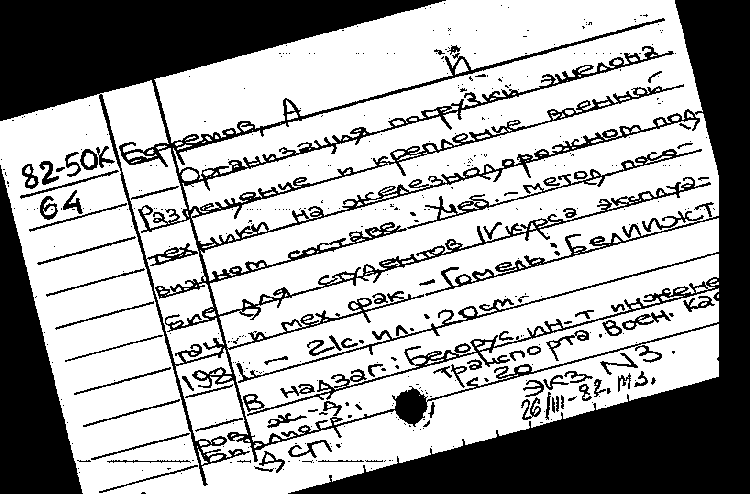 82-50К
64
Ефремов, А
Организация погрузки эшелона.
Размещение и крепление военной
техники на железнодорожном под-
вижном составе: Учеб.-метод. посо-
бие для студентов IV курса эксплуа-
тац. и мех. фак. - Гомель: БелИИЖТ
1981. - 21с. ил.; 20см.
В надзаг.: Белорус. ин-т инжене
ров ж.-д. транспорта. Воен. каф
Библиогр.: с. 20
ДСП.
ЭКЗ. N3.
26/III-82.